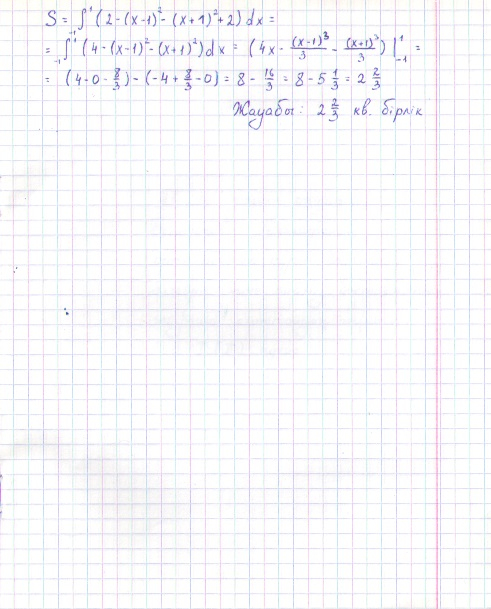 S = ₋₁∫¹ (2-(x-1)²-(x+1)²+2) dx =
= ₋₁∫¹ (4-(x-1)²-(x+1)²) dx = (4x - (x-1)³/3 - (x+1)³/3) |¹₋₁ =
= (4-0-8/3) - (-4+8/3-0) = 8 - 16/3 = 8 - 5 1/3 = 2 2/3
Жауабы: 2 2/3 кв. бірлік